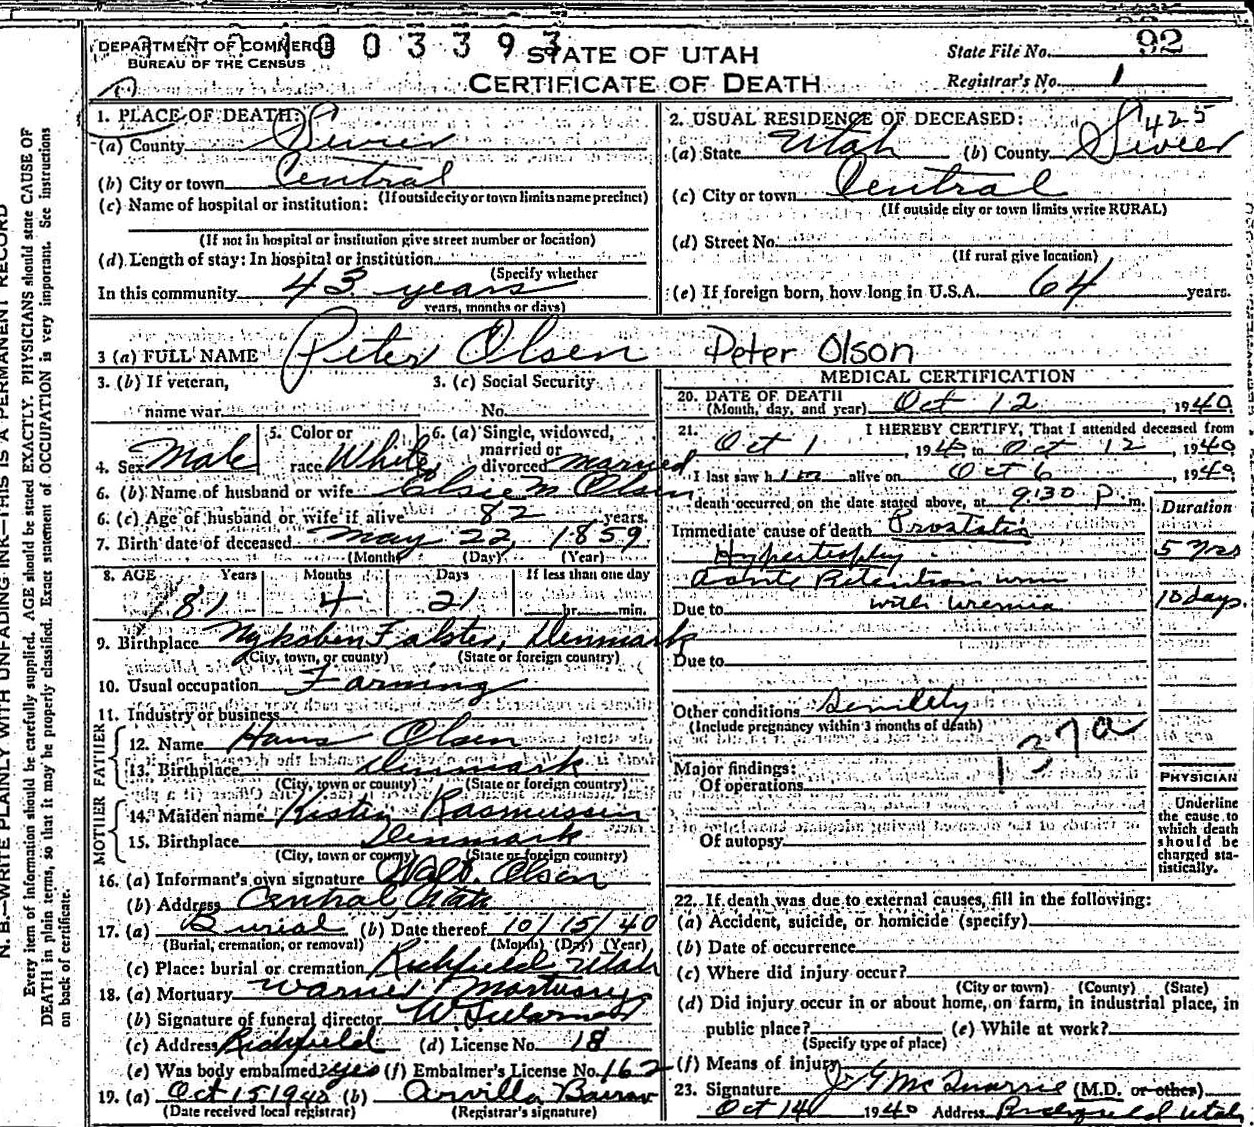 DEPARTMENT OF COMMERCE
BUREAU OF THE CENSUS
1003393
STATE OF UTAH
CERTIFICATE OF DEATH
State File No. 92
Registrar's No. 1
1. PLACE OF DEATH:
(a) County Sevier
(b) City or town Central
(If outside city or town limits name precinct)
(c) Name of hospital or institution:
(If not in hospital or institution give street number or location)
(d) Length of stay: In hospital or institution
(Specify whether
In this community 43 years
years, months or days)
2. USUAL RESIDENCE OF DECEASED: 425
(a) State Utah (b) County Sevier
(c) City or town Central
(If outside city or town limits write RURAL)
(d) Street No.
(If rural give location)
(e) If foreign born, how long in U.S.A. 64 years.
3 (a) FULL NAME Peter Olsen Peter Olson
3. (b) If veteran,
name war
3. (c) Social Security
No.
4. Sex Male
5. Color or
race White
6. (a) Single, widowed,
married or
divorced married
6. (b) Name of husband or wife Elsie M Olsen
6. (c) Age of husband or wife if alive 82 years.
7. Birth date of deceased May 22, 1859
(Month) (Day) (Year)
8. AGE Years Months Days If less than one day
81 4 21 hr. min.
9. Birthplace Nykoben Falster, Denmark
(City, town, or county) (State or foreign country)
10. Usual occupation Farming
11. Industry or business
FATHER
12. Name Hans Olsen
13. Birthplace Denmark
(City, town or county) (State or foreign country)
MOTHER
14. Maiden name Kistin Rasmussen
15. Birthplace Denmark
(City, town or county) (State or foreign country)
16. (a) Informant's own signature Walt. Olsen
(b) Address Central Utah
17. (a) Burial (b) Date thereof 10/15/40
(Burial, cremation, or removal) (Month) (Day) (Year)
(c) Place: burial or cremation Richfield Utah
18. (a) Mortuary Mortuary
(b) Signature of funeral director
(c) Address Richfield (d) License No. 18
(e) Was body embalmed? yes (f) Embalmer's License No. 162
19. (a) Oct 15 1940 (b) Arvilla
(Date received local registrar) (Registrar's signature)
MEDICAL CERTIFICATION
20. DATE OF DEATH
(Month, day, and year) Oct 12, 1940
21. I HEREBY CERTIFY, That I attended deceased from
Oct 1, 1940 to Oct 12, 1940
I last saw him alive on Oct 6 1940
death occurred on the date stated above, at 9:30 P.m.
Duration
Immediate cause of death Prostatic
Hypertrophy 5 yrs
Acute Retention urine
Due to with uremia 10 days
Due to
Other conditions Senility
(Include pregnancy within 3 months of death)
137a
Major findings:
Of operations
Of autopsy
PHYSICIAN
Underline
the cause to
which death
should be
charged sta-
tistically.
22. If death was due to external causes, fill in the following:
(a) Accident, suicide, or homicide (specify)
(b) Date of occurrence
(c) Where did injury occur?
(City or town) (County) (State)
(d) Did injury occur in or about home, on farm, in industrial place, in
public place? (e) While at work?
(Specify type of place)
(f) Means of injury
23. Signature J G McQuarrie (M.D. or other)
Oct 14 1940 Address Richfield Utah
N. B.—WRITE PLAINLY WITH UNFADING INK—THIS IS A PERMANENT RECORD
Every item of information should be carefully supplied. AGE should be stated EXACTLY. PHYSICIANS should state CAUSE OF
DEATH in plain terms, so that it may be properly classified. Exact statement of OCCUPATION is very important. See instructions
on back of certificate.